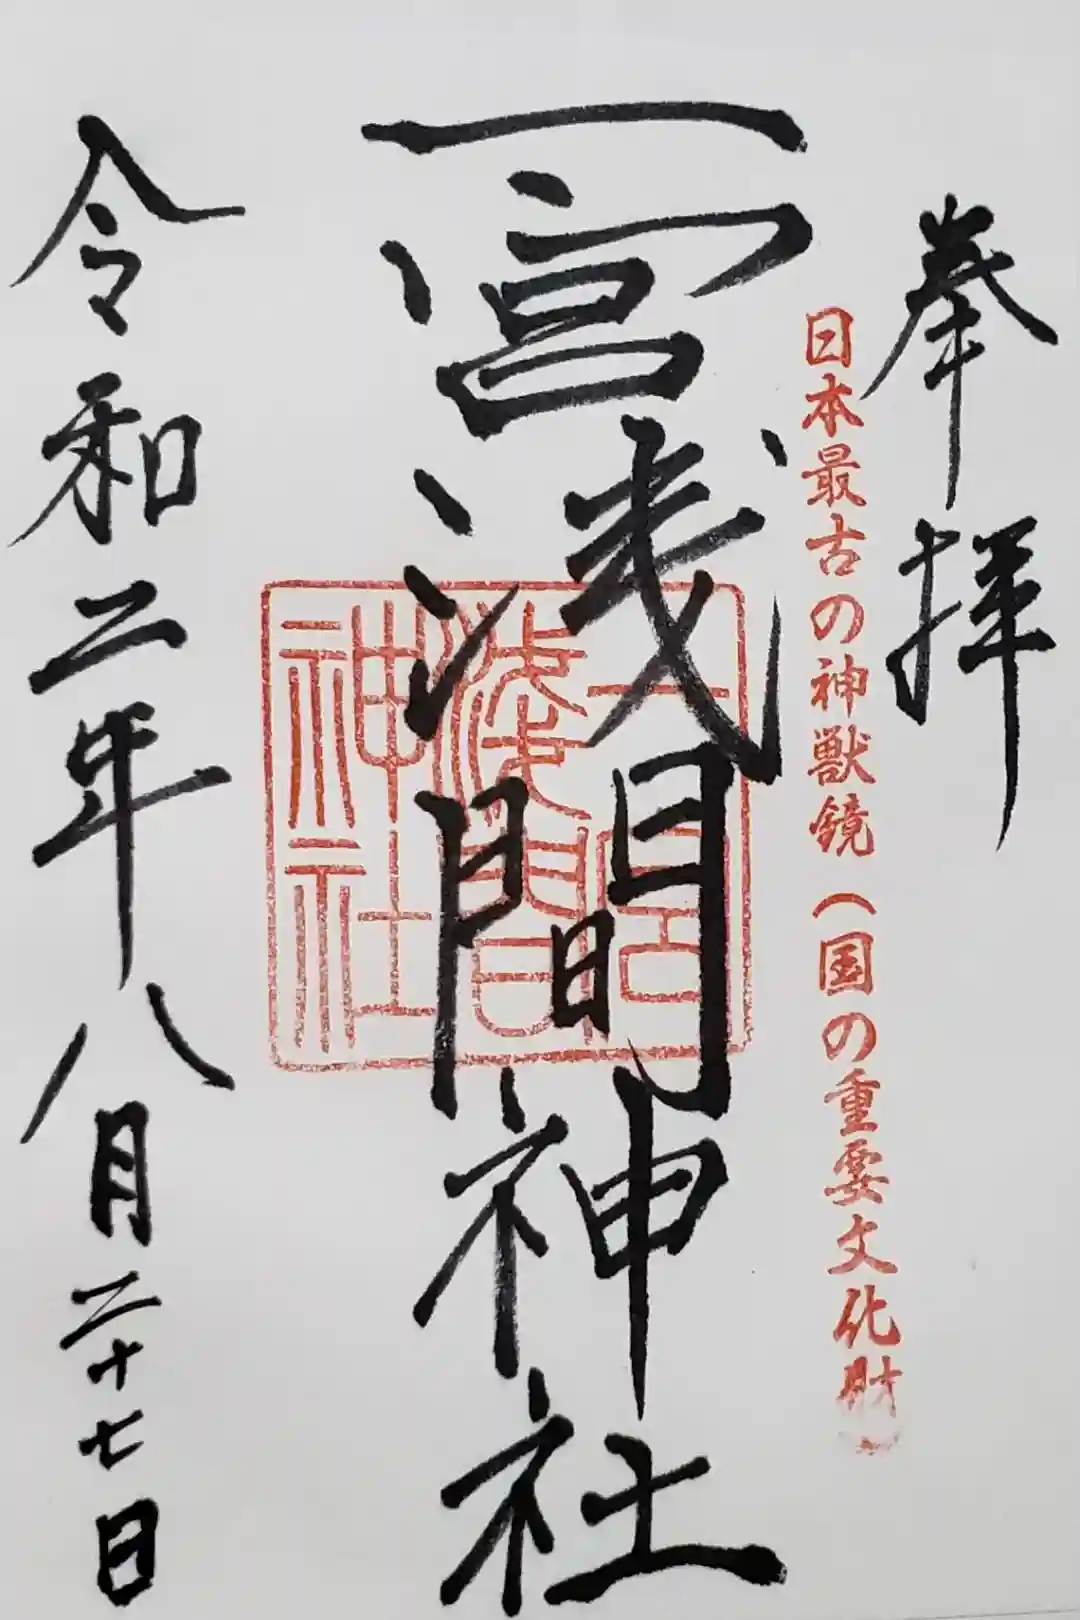 奉拝
日本最古の神獣鏡（国の重要文化財）
一宮浅間神社
一宮
浅間
神社
令和二年八月二十七日